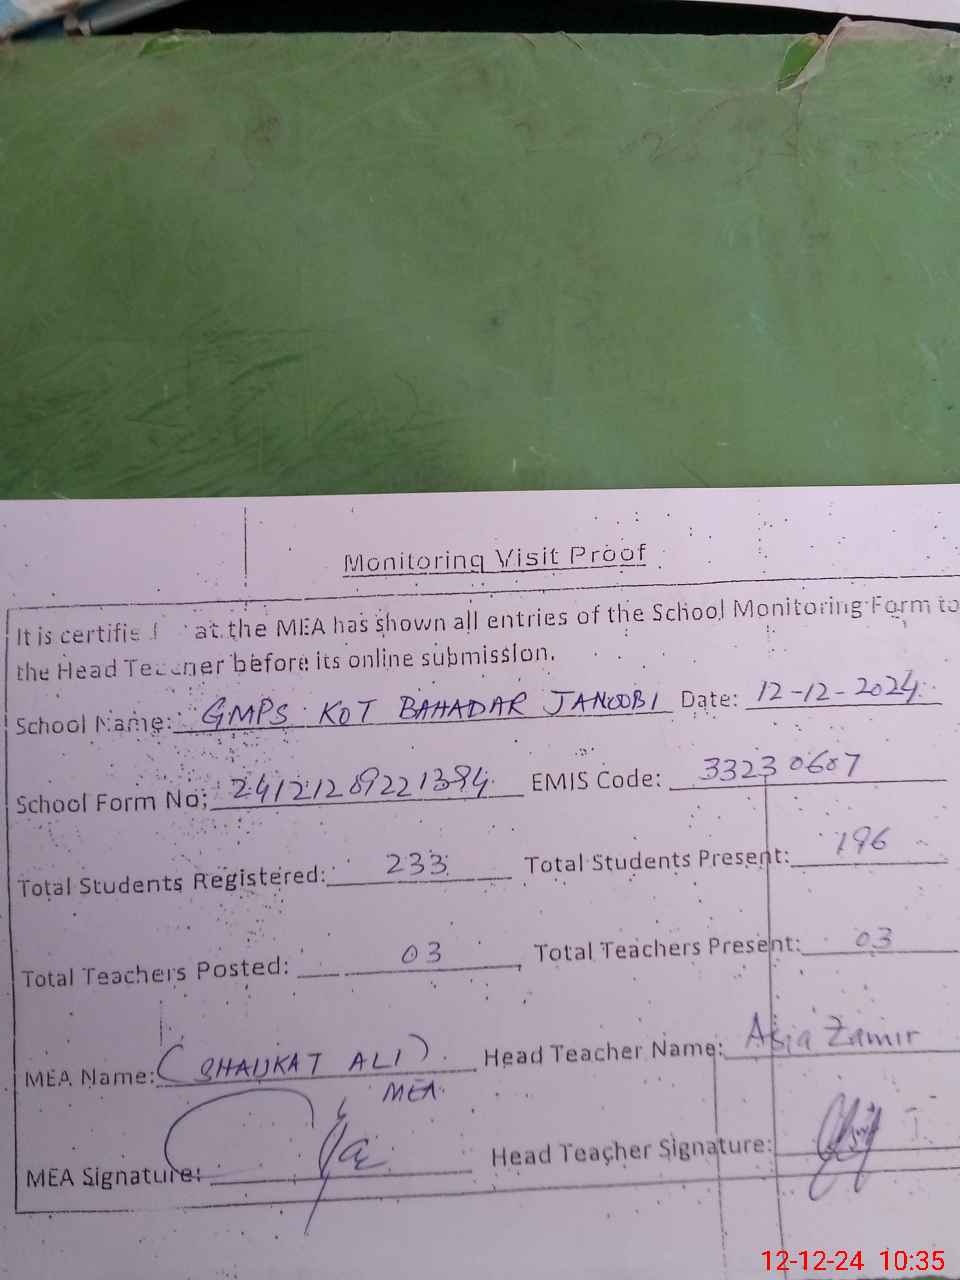 Monitoring Visit Proof
It is certifie at the MEA has shown all entries of the School Monitoring Form to
the Head Teacher before its online submission.
School Name: GMPS KOT BAHADAR JANOOBI Date: 12-12-2024
School Form No: 2412128922 1394 EMIS Code: 33230607
Total Students Registered: 233 Total Students Present: 196
Total Teachers Posted: 03 Total Teachers Present: 03
MEA Name: (SHAUKAT ALI) Head Teacher Name: Asia Zamir
MEA
MEA Signature: Head Teacher Signature:
12-12-24 10:35